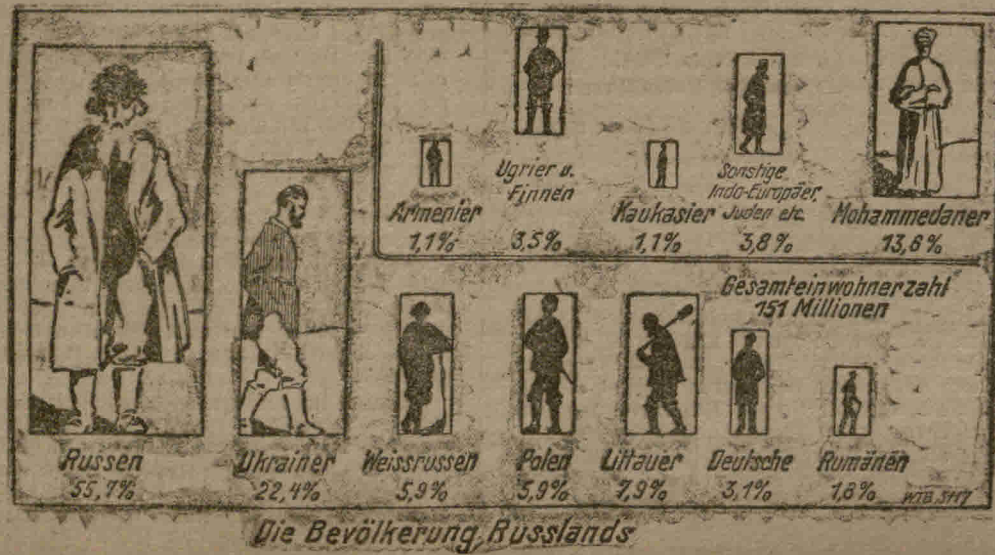 Armenier
1,1%
Ugrier u.
Finnen
3,5%
Kaukasier
1,1%
Sonstige
Indo-Europäer,
Juden etc.
3,8%
Mohammedaner
13,6%
Gesamteinwohnerzahl
151 Millionen
Russen
55,7%
Ukrainer
22,4%
Weissrussen
5,9%
Polen
5,9%
Littauer
7,9%
Deutsche
3,1%
Rumänen
1,8%
WTB
Die Bevölkerung Russlands